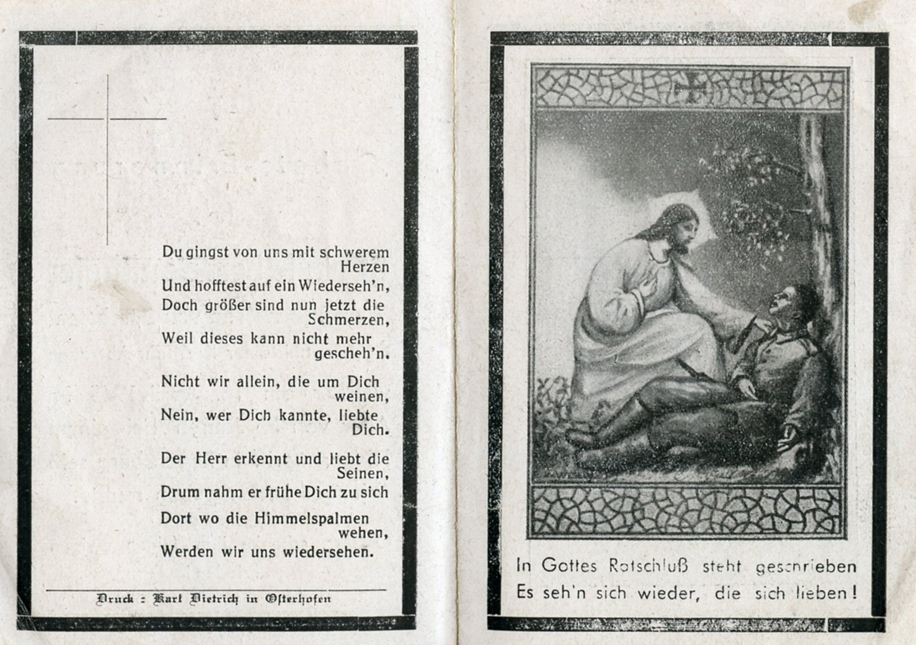 Du gingst von uns mit schwerem
Herzen
Und hofftest auf ein Wiederseh'n,
Doch größer sind nun jetzt die
Schmerzen,
Weil dieses kann nicht mehr
gescheh'n.
Nicht wir allein, die um Dich
weinen,
Nein, wer Dich kannte, liebte
Dich.
Der Herr erkennt und liebt die
Seinen,
Drum nahm er frühe Dich zu sich
Dort wo die Himmelspalmen
wehen,
Werden wir uns wiedersehen.
Druck : Karl Dietrich in Osterhofen
In Gottes Ratschluß steht geschrieben
Es seh'n sich wieder, die sich lieben!